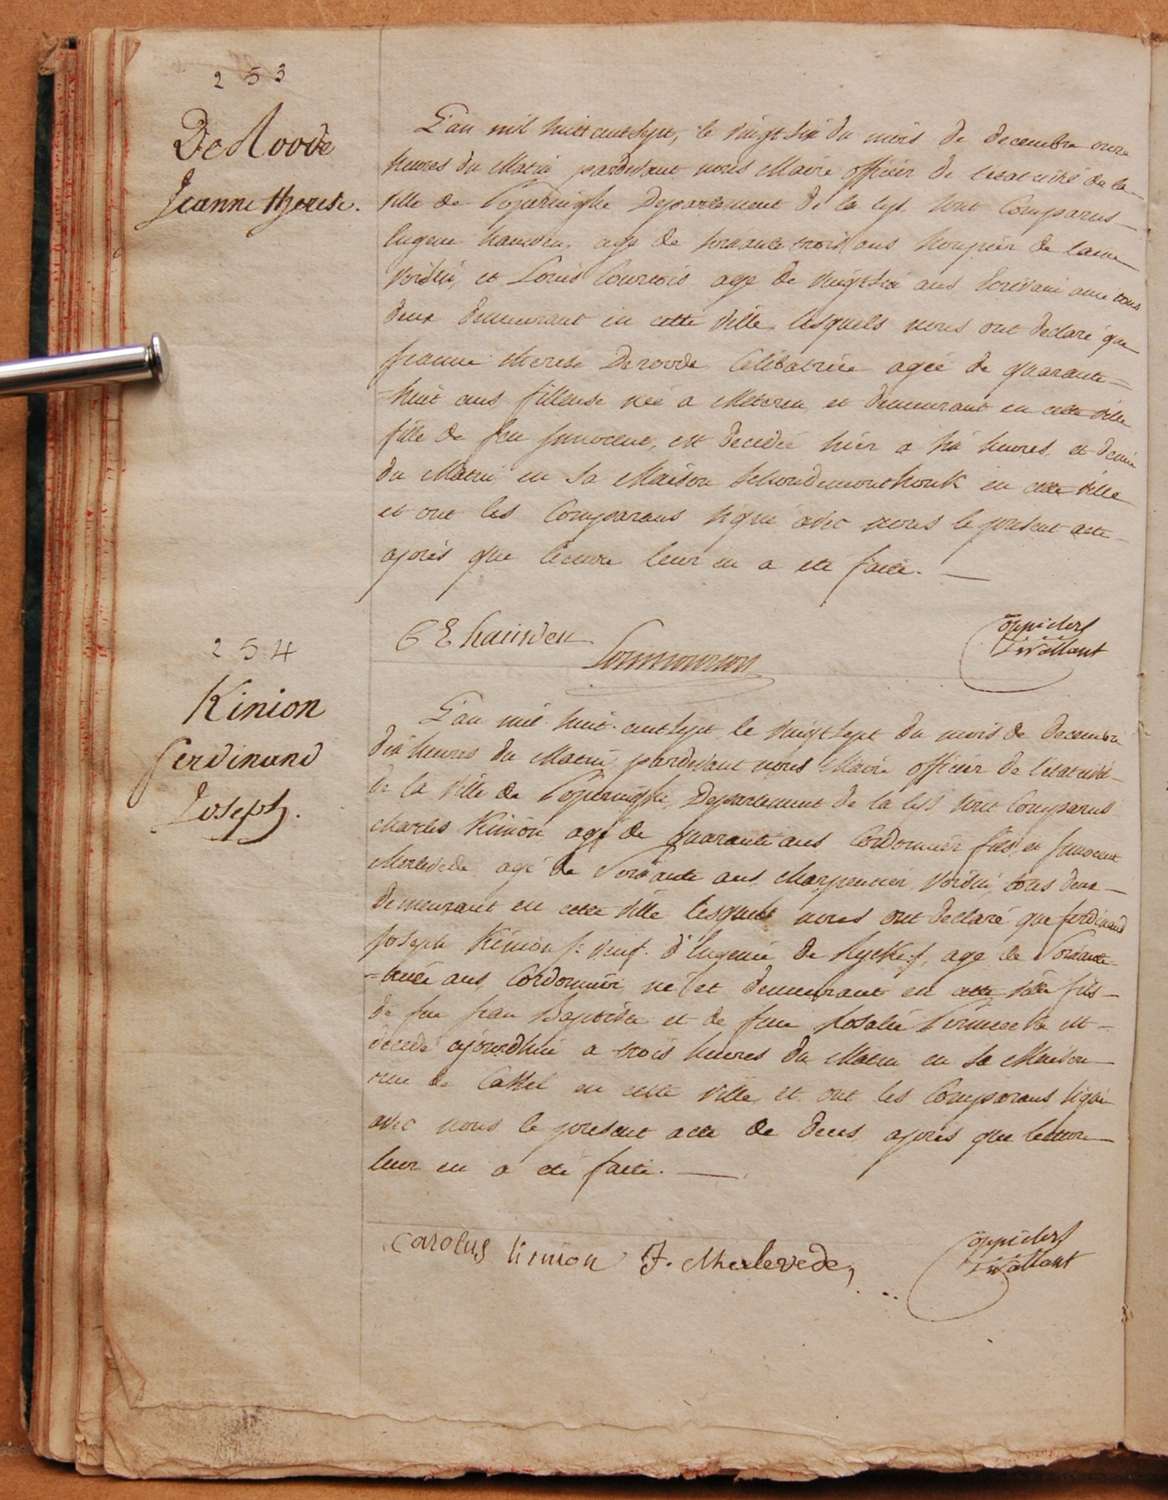 253
DeRoode
Jeanne therese.
L'an mil huit cent sept, le vingt six du mois de decembre onze
heures du Matin pardevant nous Maire officier de l'etat civil de la
ville de Poperinghe Departement de la Lys sont Comparus
Eugene hauwen age de soixante trois ans houpier de laine
voisin, et Louis Courtois age de vingt six ans Ecrivain ami tous
deux demeurant en cette ville lesquels nous ont declaré que
jeanne therese Deroode Celibatrice agée de quarante=
huit ans fileuse née a Meteren et demeurant en cette ville
fille de feu Innocent, est decedée hier a six heures et demie
du Matin en sa Maison en cette ville
et ont les Comparans signé avec nous le present acte
apres que lecture leur en a ete faite.
C E hauwen
oppiders
254
Kinion
ferdinand
Joseph.
L'an mil huit cent sept le vingt sept du mois de decembre
dix heures du Matin pardevant nous Maire officier de l'etat civil
de la ville de Poperinghe, Departement de la Lys sont Comparus
charles Kinion age de quarante ans Cordonnier fils, et Innocent
Merlevede agé de soixante ans Charpentier voisin, tous deux
demeurant en cette ville lesquels nous ont declaré que ferdinand
joseph Kinion veuf d'Eugenie de age de soixante
ans Cordonnier né et demeurant en cette ville fils
de feu jean Baptiste et de feue Rosalie est
decedé ajourdhui a trois heures du Matin en sa Maison
rue de Cassel en cette ville et ont les Comparans signé
avec nous le present acte de deces apres que lecture
leur en a eté faite.
Carolus kinion J. Merlevede,
oppiders